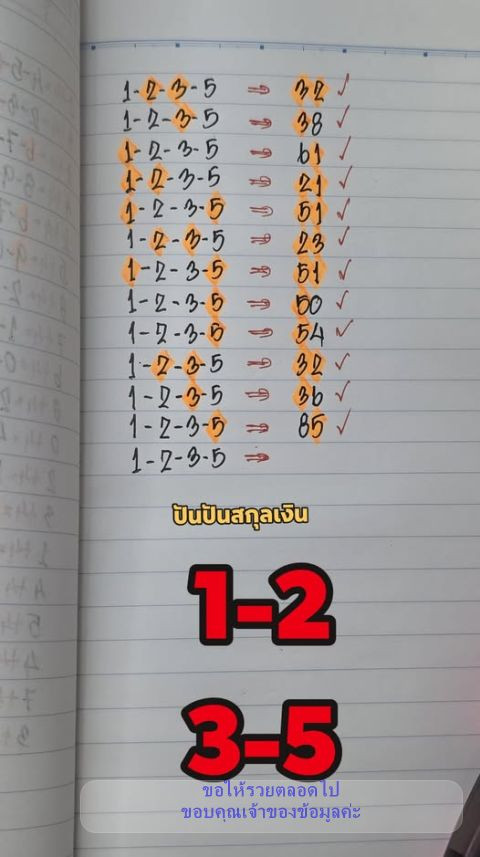 1-2-3-5 ⇒ 32 ✓
1-2-3-5 ⇒ 38 ✓
1-2-3-5 ⇒ 61 ✓
1-2-3-5 ⇒ 21 ✓
1-2-3-5 ⇒ 51 ✓
1-2-3-5 ⇒ 23 ✓
1-2-3-5 ⇒ 51 ✓
1-2-3-5 ⇒ 50 ✓
1-2-3-5 ⇒ 54 ✓
1-2-3-5 ⇒ 32 ✓
1-2-3-5 ⇒ 36 ✓
1-2-3-5 ⇒ 85 ✓
1-2-3-5 ⇒
ปันปันสกุลเงิน
1-2
3-5
ขอให้รวยตลอดไป
ขอบคุณเจ้าของข้อมูลค่ะ